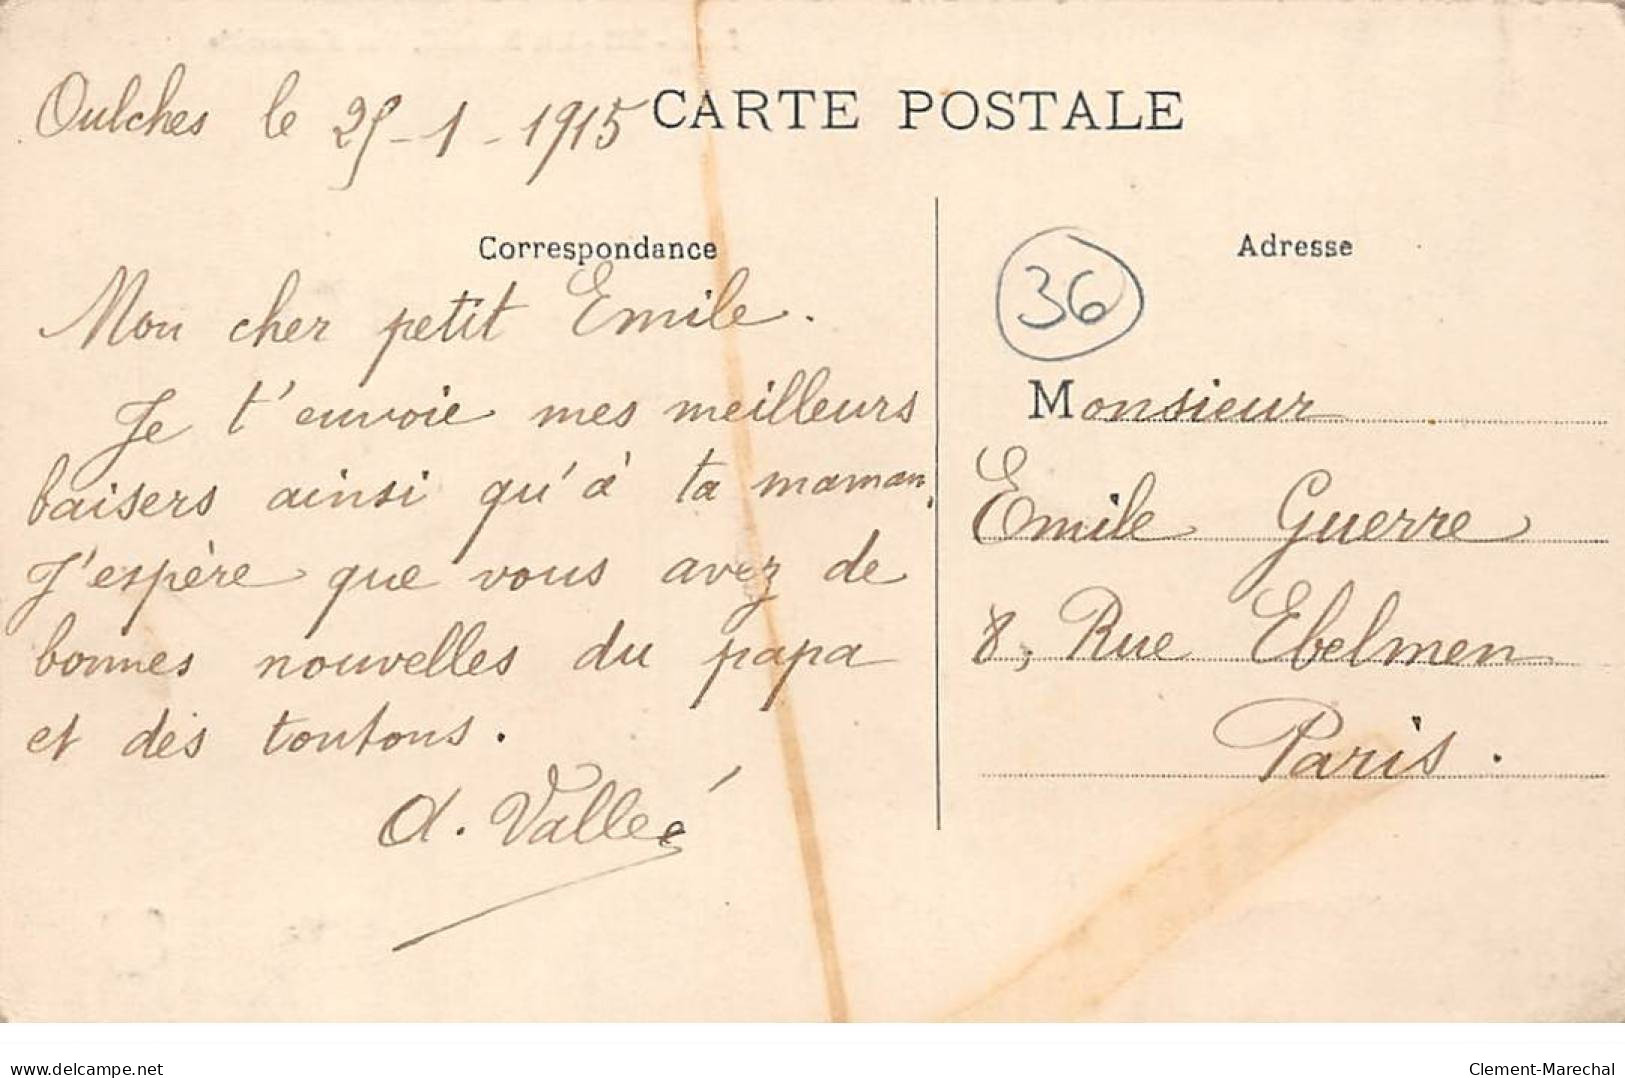 Oulches le 25-1-1915
CARTE POSTALE
Correspondance
Mon cher petit Emile.
Je t'envoie mes meilleurs
baisers ainsi qu'à ta maman.
J'espère que vous avez de
bonnes nouvelles du papa
et des tontons.
A. Vallée
Adresse
36
Monsieur
Emile Guerre
8, Rue Ebelmen
Paris.
delcampe.net
Clement-Marechal